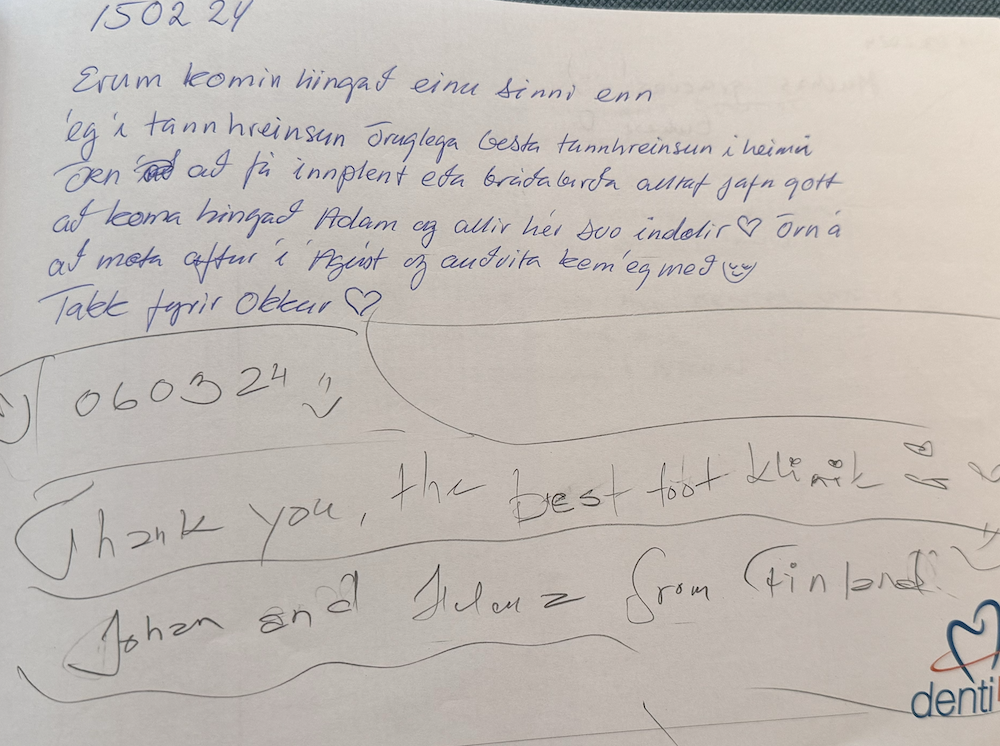 150224
Erum komin hingað einu sinni enn
ég í tannhreinsun Öruglega besta tannhreinsun i heimi
Örn að fá innplent eða bráðabirða alltaf jafn gott
að koma hingað Adam og allir hér svo indolir ♡ Örn á
að mæta aftur í Ágúst og auðvita kem ég með
Takk fyrir Okkur ♡
060324
Thank you, the best toot klinik
Johan and Helena from Finland
denti